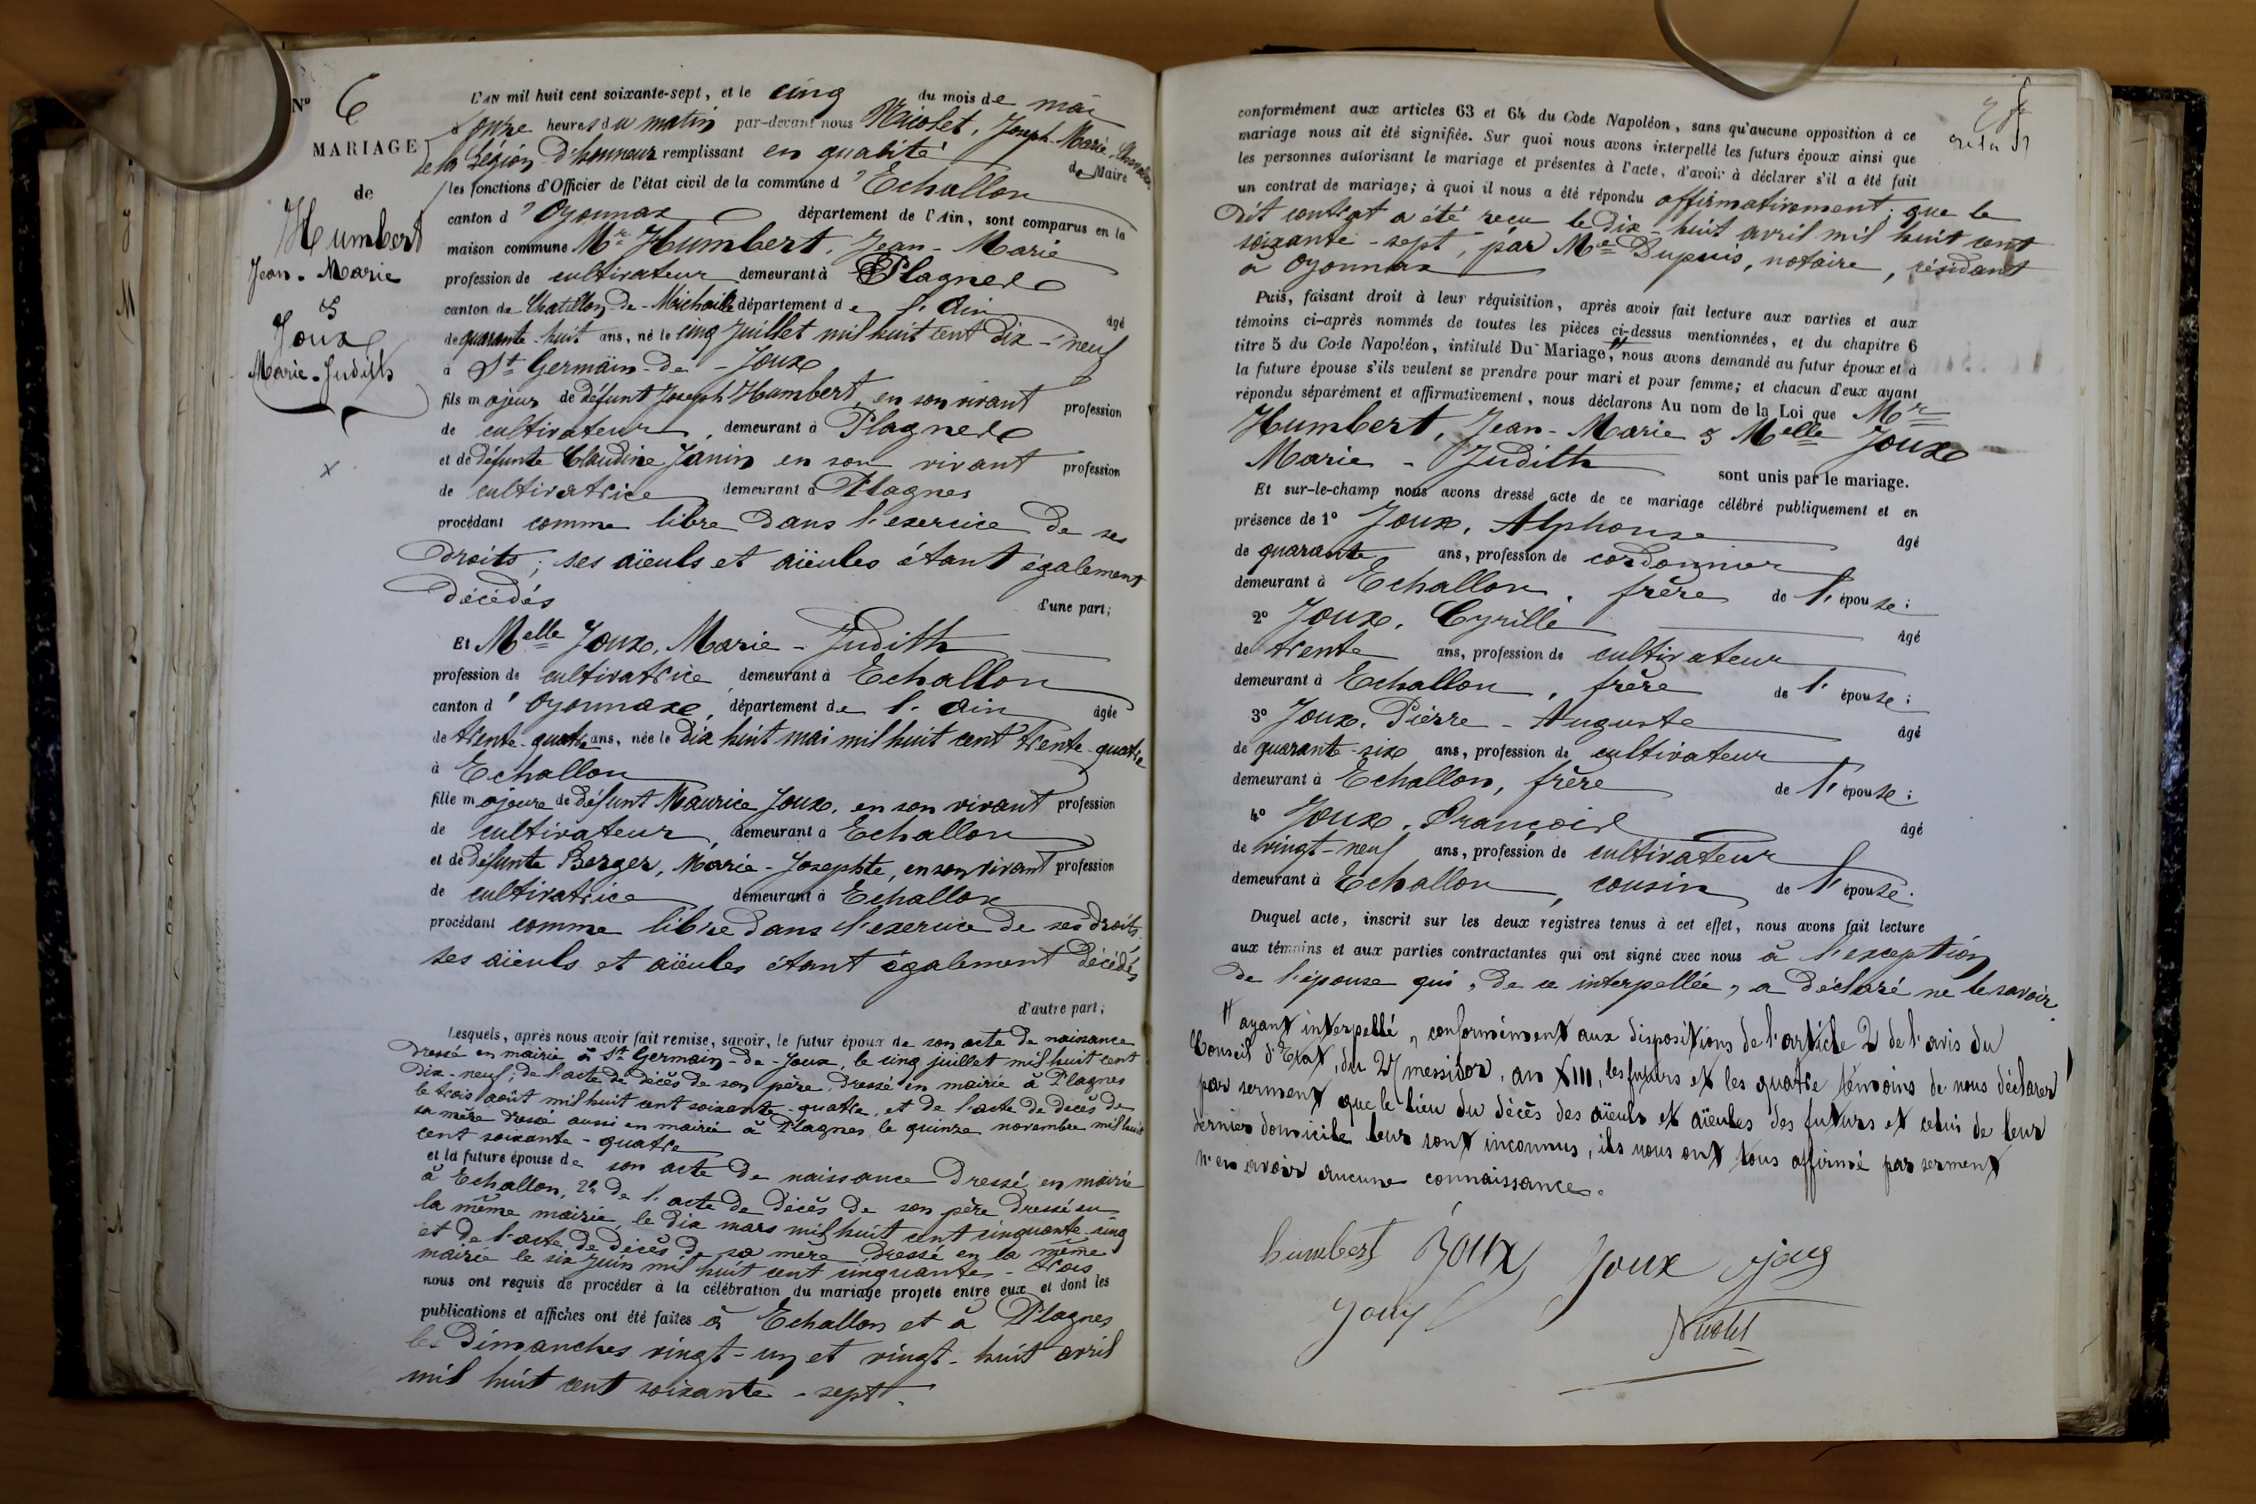 N° 6
MARIAGE
de
Humbert
Jean-Marie
&
Joux
Marie-Judith
L'AN mil huit cent soixante-sept, et le cinq du mois de mai
à onze heures du matin par-devant nous Nicolet, Joseph-Marie, Chevalier
de la Légion d'honneur remplissant en qualité de Maire
les fonctions d'Officier de l'état civil de la commune d'Echallon
canton d'Oyonnax département de l'Ain, sont comparus en la
maison commune Mr Humbert, Jean-Marie
profession de cultivateur demeurant à Plagnes
canton de Chatillon-de-Michaille département de l'Ain âgé
de quarante-huit ans, né le cinq Juillet mil huit cent dix-neuf
à St Germain-de-Joux
fils majeur de défunt Joseph Humbert, en son vivant profession
de cultivateur, demeurant à Plagnes
et de défunte Claudine Janin en son vivant profession
de cultivatrice demeurant à Plagnes
procédant comme libre dans l'exercice de ses
droits; ses aïeuls et aïeules étant également
décédés d'une part;
Et Melle Joux, Marie-Judith
profession de cultivatrice demeurant à Echallon
canton d'Oyonnax, département de l'Ain âgée
de trente-quatre ans, née le dix huit mai mil huit cent trente-quatre
à Echallon
fille majeure de défunt Maurice Joux, en son vivant profession
de cultivateur, demeurant à Echallon
et de défunte Berger, Marie-Josephte, en son vivant profession
de cultivatrice demeurant à Echallon
procédant comme libre dans l'exercice de ses droits,
ses aïeuls et aïeules étant également décédés
d'autre part;
Lesquels, après nous avoir fait remise, savoir, le futur époux de son acte de naissance
dressé en mairie à St Germain-de-Joux, le cinq juillet mil huit cent
dix-neuf; de l'acte de décès de son père dressé en mairie à Plagnes
le trois août mil huit cent soixante-quatre, et de l'acte de décès de
sa mère dressé aussi en mairie à Plagnes, le quinze novembre mil huit
cent soixante-quatre
et la future épouse de son acte de naissance dressé en mairie
à Echallon, 2° de l'acte de décès de son père dressé en
la même mairie, le dix mars mil huit cent cinquante-cinq
et de l'acte de décès de sa mère dressé en la même
mairie le six juin mil huit cent cinquante-trois
nous ont requis de procéder à la célébration du mariage projeté entre eux et dont les
publications et affiches ont été faites à Echallon et à Plagnes
les Dimanches vingt-un et vingt-huit avril
mil huit cent soixante-sept.
conformément aux articles 63 et 64 du Code Napoléon, sans qu'aucune opposition à ce
mariage nous ait été signifiée. Sur quoi nous avons interpellé les futurs époux ainsi que
les personnes autorisant le mariage et présentes à l'acte, d'avoir à déclarer s'il a été fait
un contrat de mariage; à quoi il nous a été répondu affirmativement; que le
dit contrat a été reçu le dix-huit avril mil huit cent
soixante-sept, par Me Dupuis, notaire, résidant
à Oyonnax
Puis, faisant droit à leur réquisition, après avoir fait lecture aux parties et aux
témoins ci-après nommés de toutes les pièces ci-dessus mentionnées, et du chapitre 6
titre 5 du Code Napoléon, intitulé Du Mariage, # nous avons demandé au futur époux et à
la future épouse s'ils veulent se prendre pour mari et pour femme; et chacun d'eux ayant
répondu séparément et affirmativement, nous déclarons Au nom de la Loi que Mr
Humbert, Jean-Marie & Melle Joux
Marie-Judith sont unis par le mariage.
Et sur-le-champ nous avons dressé acte de ce mariage célébré publiquement et en
présence de 1° Joux, Alphonse âgé
de quarante ans, profession de cordonnier
demeurant à Echallon, frère de l'épouse;
2° Joux, Cyrille âgé
de trente ans, profession de cultivateur
demeurant à Echallon, frère de l'épouse;
3° Joux, Pierre-Auguste âgé
de quarante-six ans, profession de cultivateur
demeurant à Echallon, frère de l'épouse;
4° Joux, François âgé
de vingt-neuf ans, profession de cultivateur
demeurant à Echallon, cousin de l'épouse.
Duquel acte, inscrit sur les deux registres tenus à cet effet, nous avons fait lecture
aux témoins et aux parties contractantes qui ont signé avec nous à l'exception
de l'épouse qui, de ce interpellée, a déclaré ne le savoir.
# ayant interpellé, conformément aux dispositions de l'article 2 de l'avis du
Conseil d'Etat, du 27 messidor, an XIII, les futurs et les quatre témoins de nous déclarer
par serment que le lieu du décès des aïeuls et aïeules des futurs et celui de leur
dernier domicile leur sont inconnus, ils nous ont tous affirmé par serment
n'en avoir aucune connaissance.
humbert Joux Joux Joux
Joux Nicolet